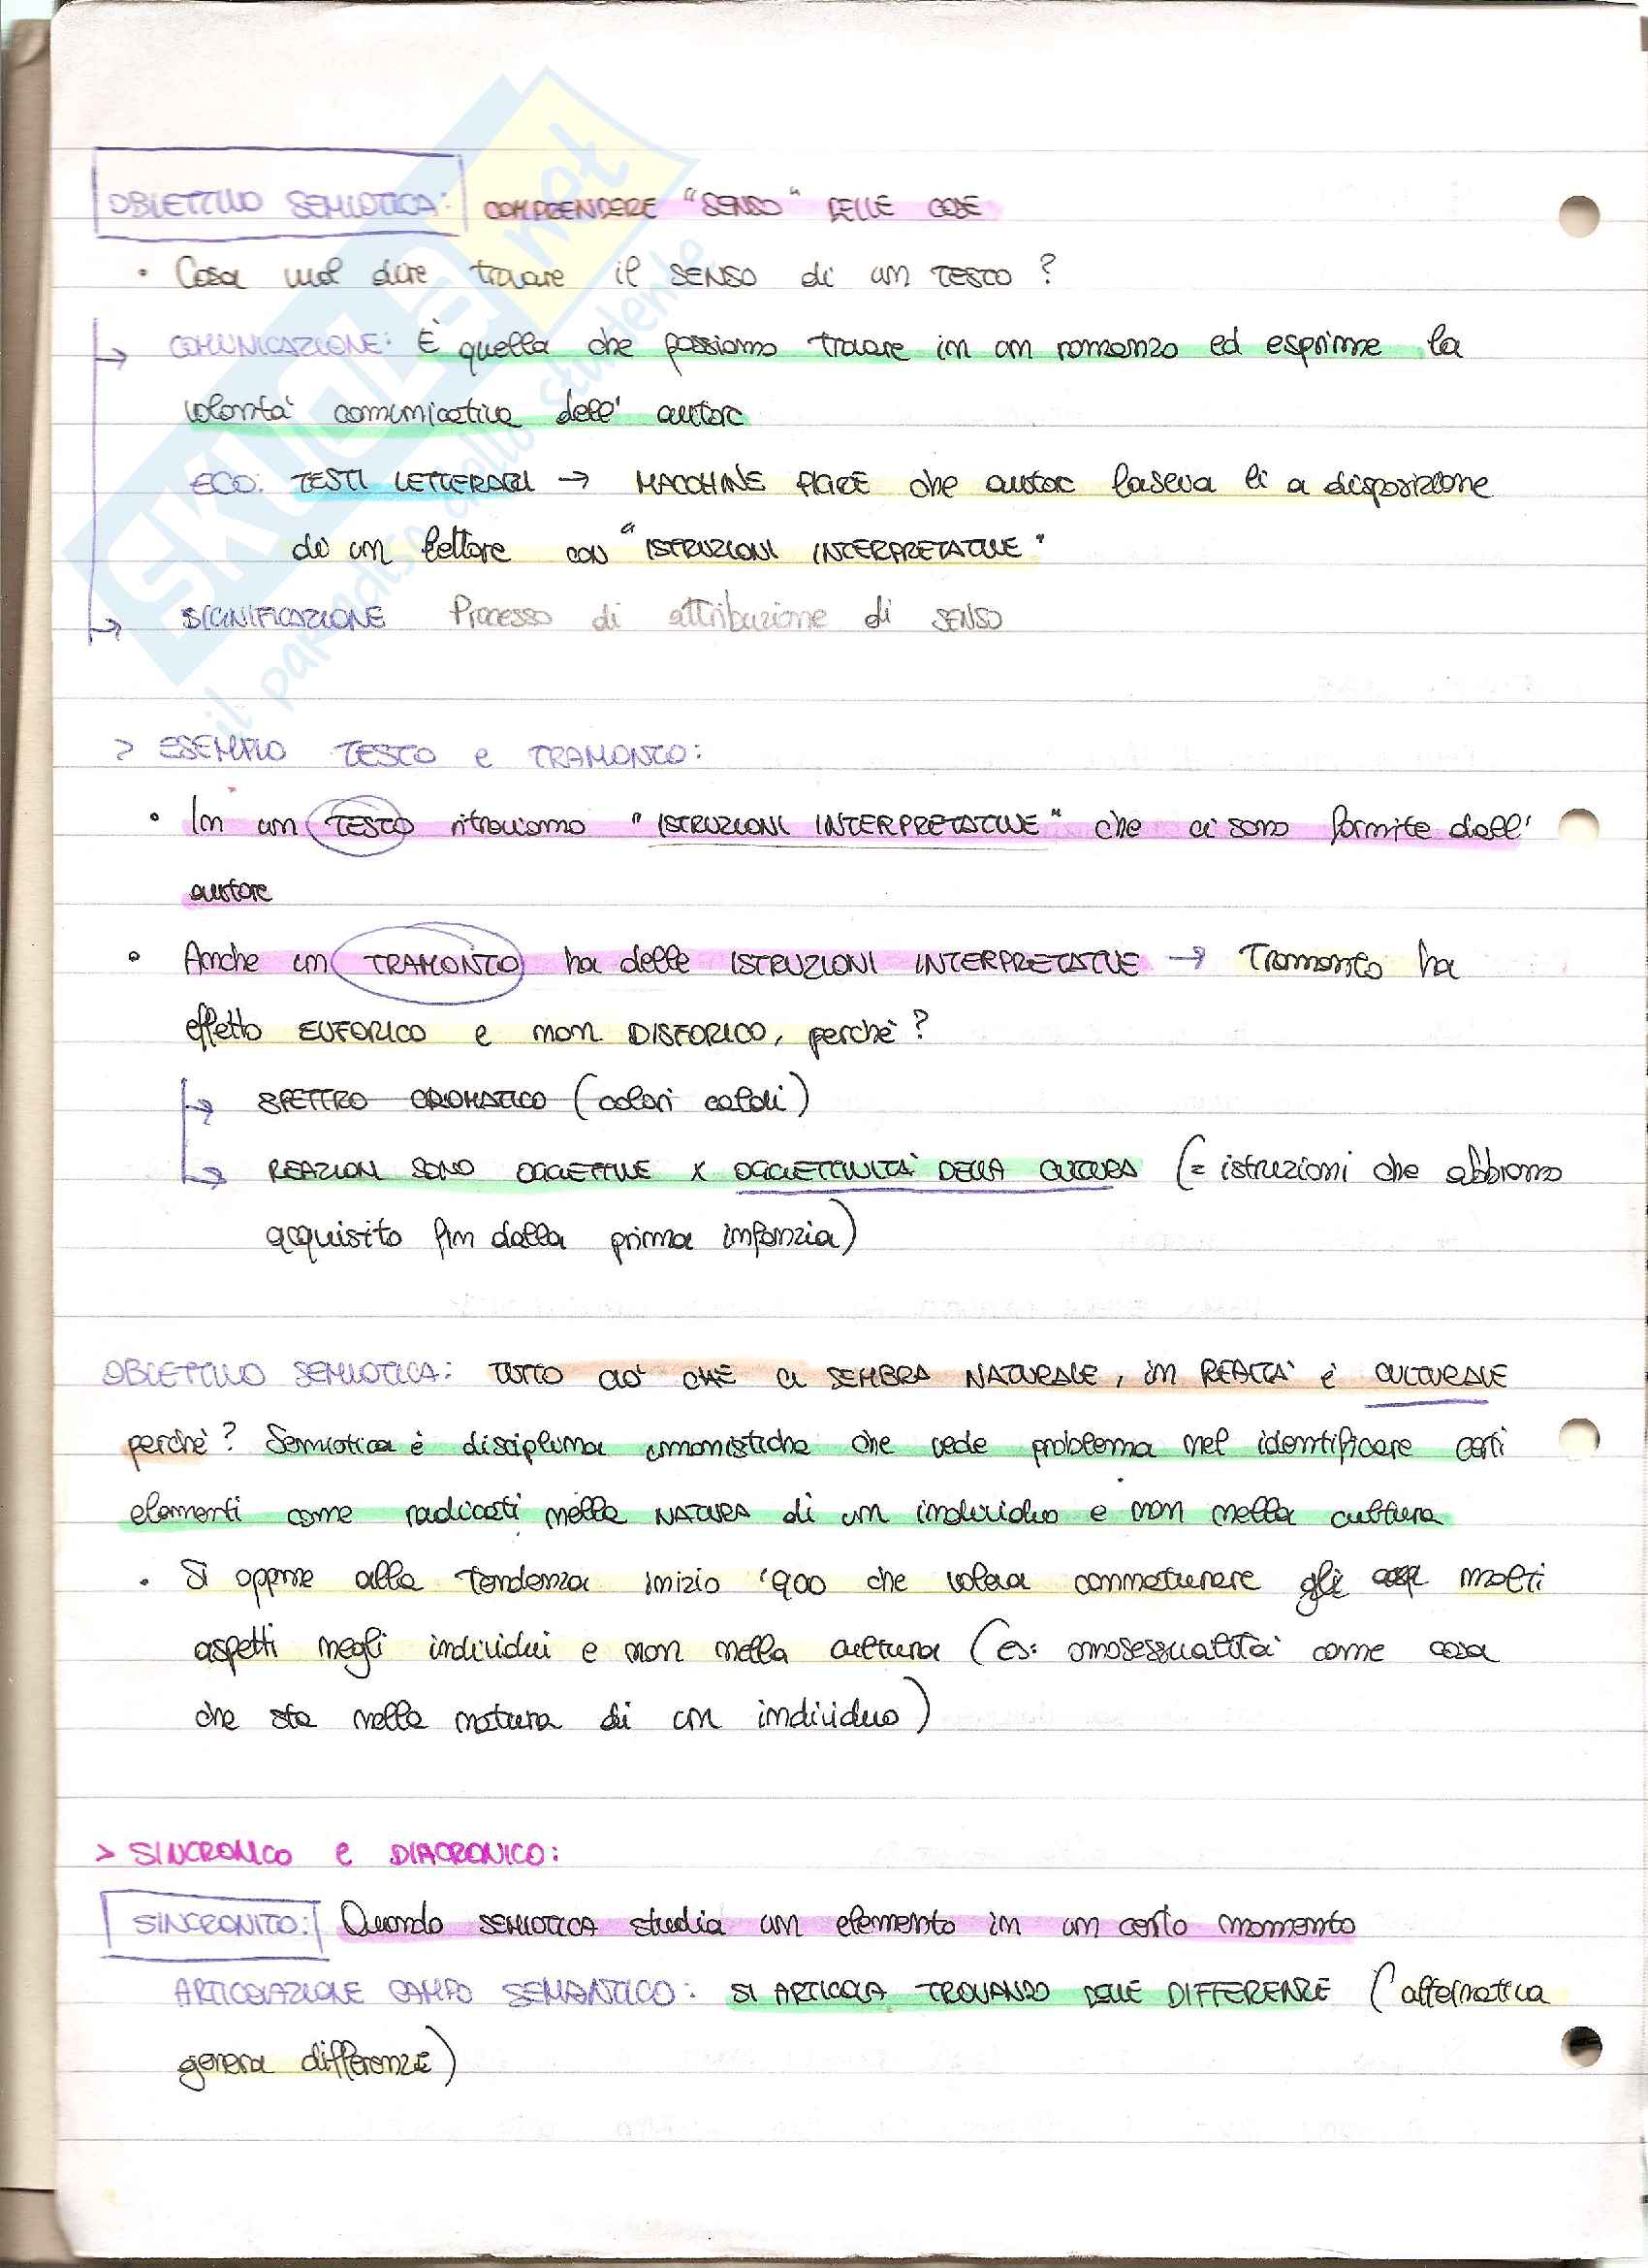 OBIETTIVO SEMIOTICA: COMPRENDERE "SENSO" DELLE COSE
• Cosa vuol dire trovare il SENSO di un TESTO?
COMUNICAZIONE: È quella che possiamo trovare in un romanzo ed esprime la
volontà comunicativa dell' autore
ECO: TESTI LETTERARI → MACCHINE PIGRE che autore lasciava lì a disposizione
di un lettore con "ISTRUZIONI INTERPRETATIVE"
SIGNIFICAZIONE Processo di attribuzione di SENSO
> ESEMPIO TESTO e TRAMONTO:
• In un TESTO ritroviamo "ISTRUZIONI INTERPRETATIVE" che ci sono fornite dall'
autore
• Anche un TRAMONTO ha delle ISTRUZIONI INTERPRETATIVE → Tramonto ha
effetto EUFORICO e non DISFORICO, perchè?
SPETTRO CROMATICO (colori caldi)
REAZIONI SONO OGGETTIVE X OGGETTIVITÀ DELLA CULTURA (= istruzioni che abbiamo
acquisito fin dalla prima infanzia)
OBIETTIVO SEMIOTICA: TUTTO CIÒ CHE CI SEMBRA NATURALE, in REALTÀ è CULTURALE
perchè? Semiotica è disciplina umanistica che vede problema nel identificare certi
elementi come radicati nella NATURA di un individuo e non nella cultura
• Si oppone alla tendenza inizio '900 che voleva connaturare gli molti
aspetti negli individui e non nella cultura (es: omosessualità come cosa
che sta nella natura di un individuo)
> SINCRONICO e DIACRONICO:
SINCRONITO: Quando SEMIOTICA studia un elemento in un certo momento
ARTICOLAZIONE CAMPO SEMANTICO: SI ARTICOLA TROVANDO DELLE DIFFERENZE (alternativa
genera differenze)
SKUOLA.not
il paradiso dello studente